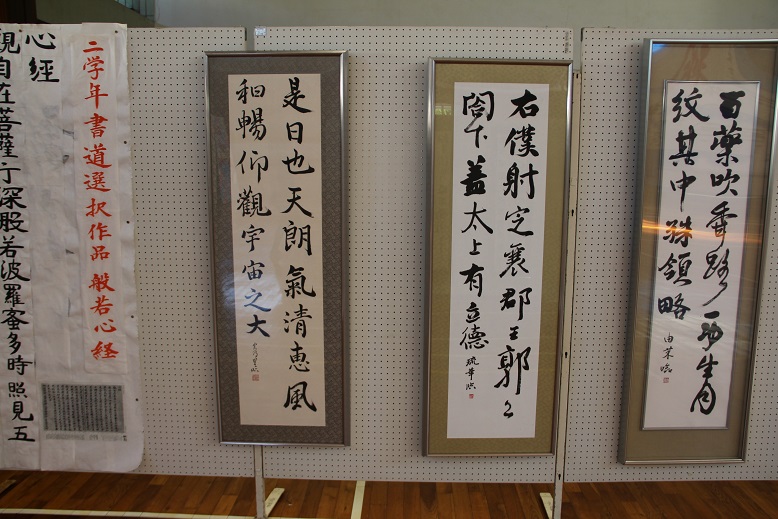 二学年書道選択作品 般若心経
心経
観自在菩薩行深般若波羅蜜多時 照見五
是日也天朗氣清恵風
和暢仰觀宇宙之大
右僕射定襄郡王郭公
閤下蓋太上有立德
吹香
紋其中殊領略